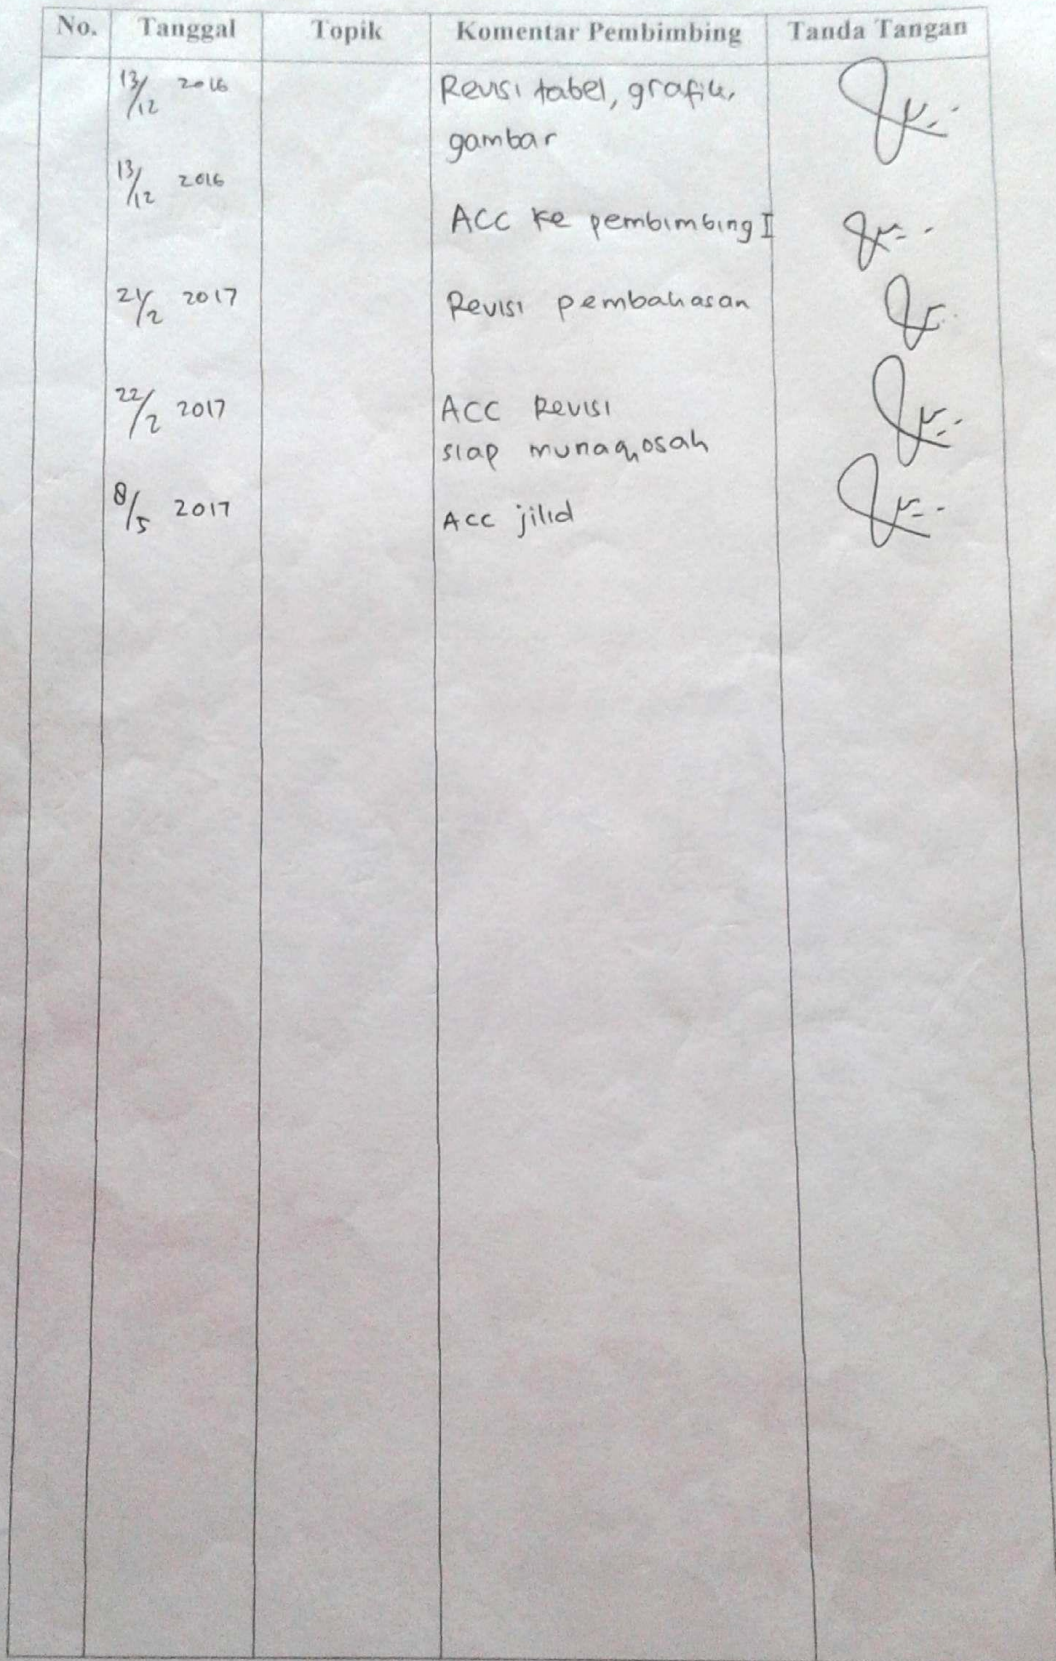 No. Tanggal Topik Komentar Pembimbing Tanda Tangan
13/12 2016 Revisi tabel, grafik,
gambar
13/12 2016
ACC ke pembimbing I
21/2 2017 Revisi pembahasan
22/2 2017 ACC Revisi
siap munaqosah
8/5 2017 Acc jilid